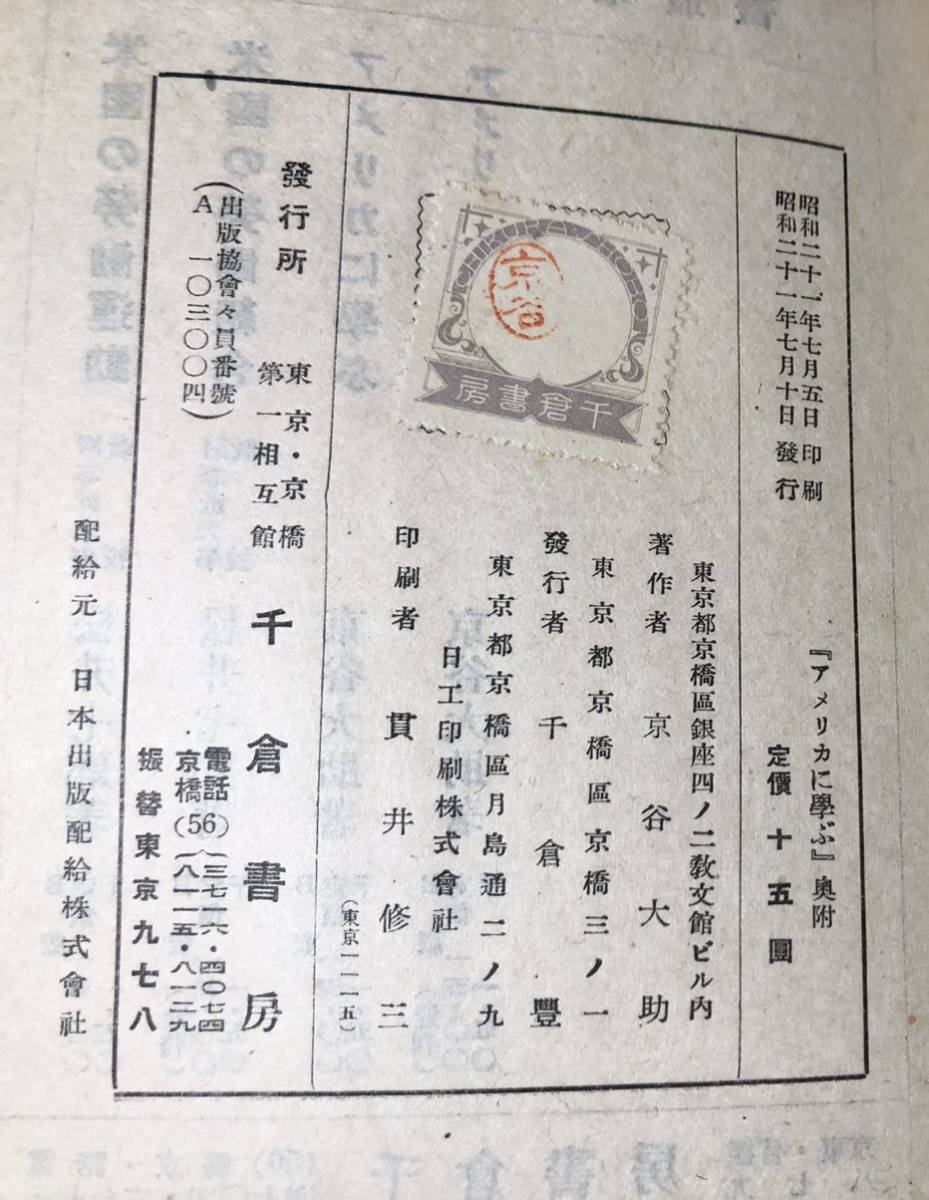 昭和二十一年七月五日 印刷
昭和二十一年七月十日 發行
『アメリカに學ぶ』奧附
定價 十五圓
CHIKURA SHOBO
京谷
千倉書房
東京都京橋區銀座四ノ二敎文館ビル内
著作者 京谷大助
東京都京橋區京橋三ノ一
發行者 千倉豐
東京都京橋區月島通二ノ一九
日工印刷株式會社
印刷者 貫井修三
(東京一一一五)
發行所
東京・京橋
第一相互館
千倉書房
(出版協會々員番號
A 一〇三〇〇四)
電話
京橋(56)
三七六六・四〇七四
八一二五・八一二九
振替東京九七八
配給元 日本出版配給株式會社